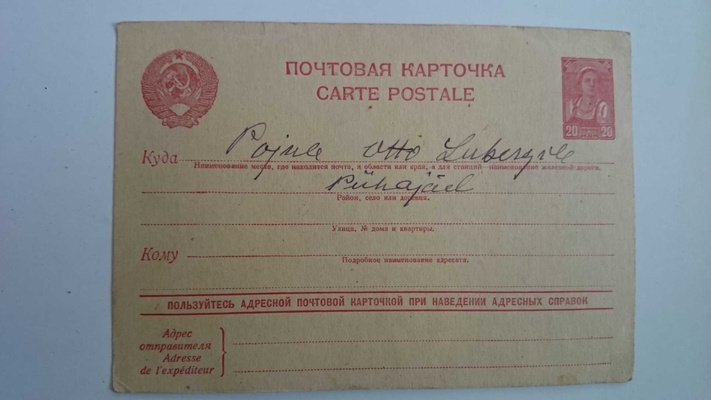 ПОЧТОВАЯ КАРТОЧКА
CARTE POSTALE
20 20
Куда Otto
Наименование места, где находится почта, и области или края, а для станций—наименование железной дороги.
Pühajäel
Район, село или деревня.
Улица, № дома и квартиры.
Кому
Подробное наименование адресата.
ПОЛЬЗУЙТЕСЬ АДРЕСНОЙ ПОЧТОВОЙ КАРТОЧКОЙ ПРИ НАВЕДЕНИИ АДРЕСНЫХ СПРАВОК
Адрес
отправителя
Adresse
de l'expéditeur